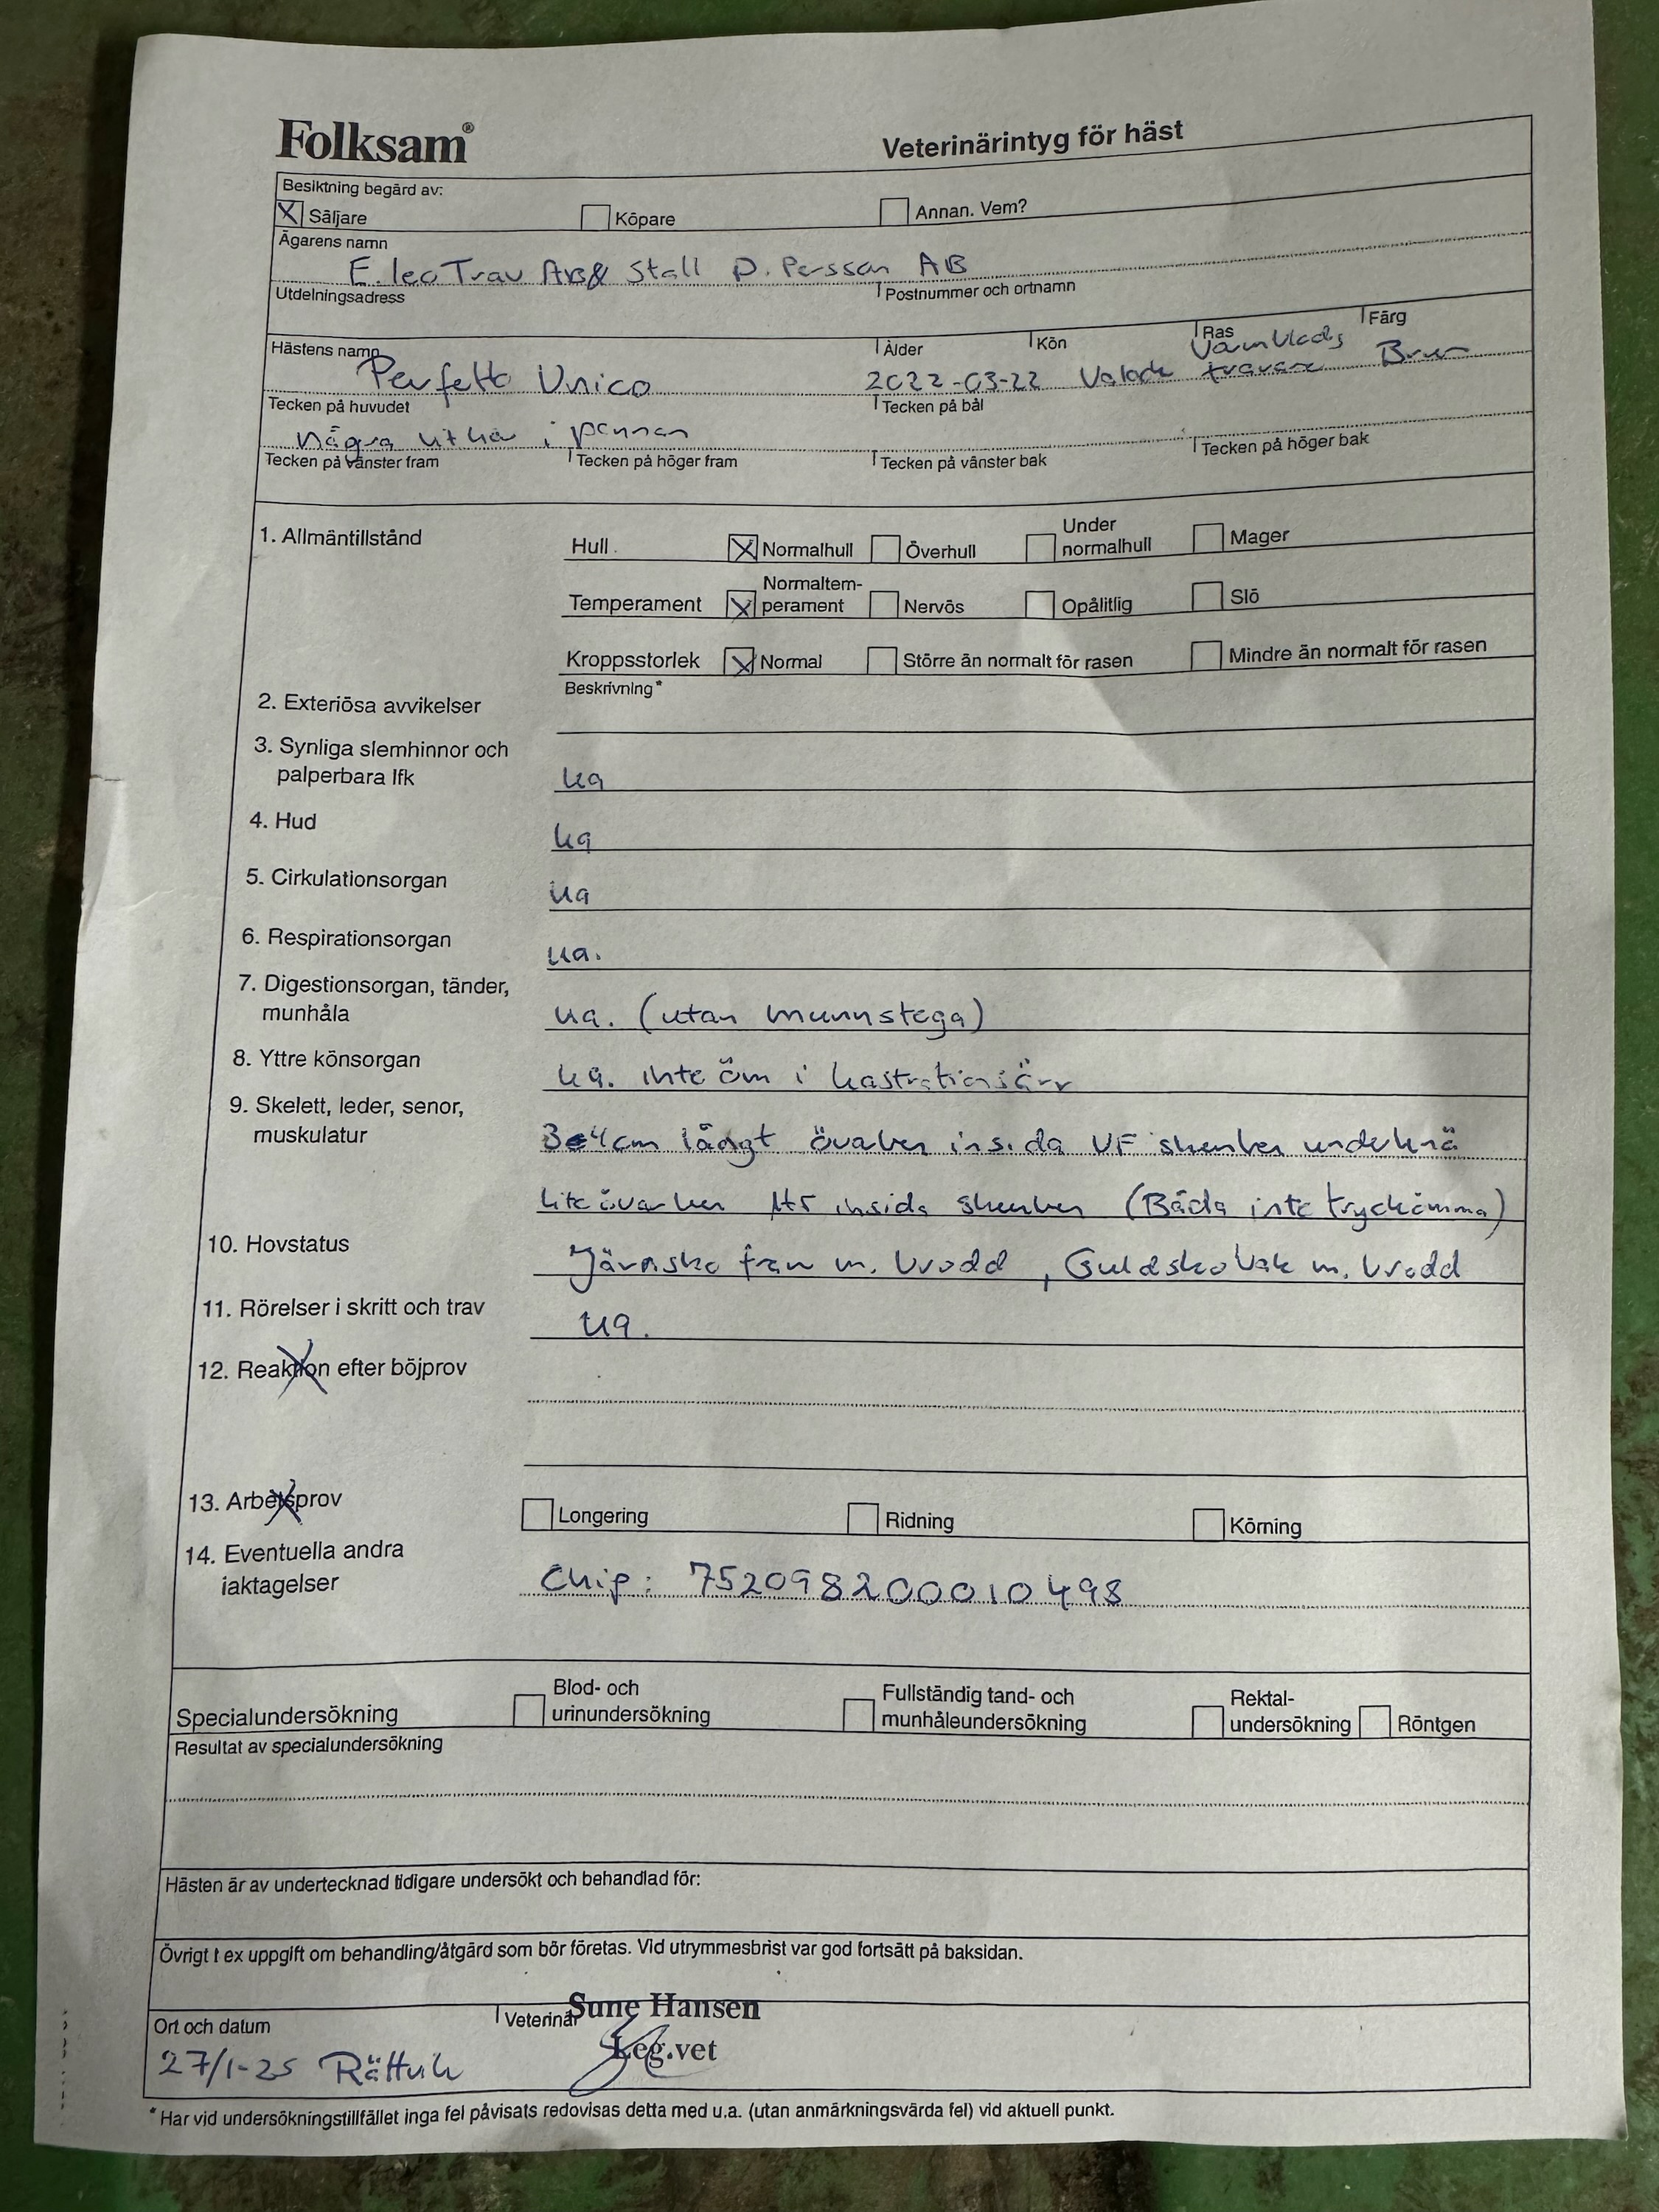 Folksam®
Veterinärintyg för häst
Besiktning begärd av:
X Säljare Köpare Annan. Vem?
Ägarens namn
E. leo Trav AB & Stall P. Persson AB
Utdelningsadress Postnummer och ortnamn
Hästens namn Ålder Kön Ras Färg
Perfetto Unico 2022-03-22 Valack Varmblods travare Brun
Tecken på huvudet Tecken på bål
några vithår i pannan
Tecken på vänster fram Tecken på höger fram Tecken på vänster bak Tecken på höger bak
1. Allmäntillstånd
Hull X Normalhull Överhull Under normalhull Mager
Temperament X Normaltem-perament Nervös Opålitlig Slö
Kroppsstorlek X Normal Större än normalt för rasen Mindre än normalt för rasen
2. Exteriösa avvikelser Beskrivning*
3. Synliga slemhinnor och
palperbara lfk ua
4. Hud ua
5. Cirkulationsorgan ua
6. Respirationsorgan ua.
7. Digestionsorgan, tänder,
munhåla ua. (utan munnstega)
8. Yttre könsorgan ua. inte öm i kastrationsärr
9. Skelett, leder, senor,
muskulatur 3-4cm långt överben insida VF skenben under knä
lite överben HF insida skenben (Båda inte tryckömma)
10. Hovstatus Järnsko fram m. brodd, Guldsko bak m. brodd
11. Rörelser i skritt och trav ua.
12. Reaktion efter böjprov
13. Arbetsprov Longering Ridning Körning
14. Eventuella andra
iaktagelser Chip: 752098200010498
Specialundersökning Blod- och urinundersökning Fullständig tand- och munhåleundersökning Rektal-undersökning Röntgen
Resultat av specialundersökning
Hästen är av undertecknad tidigare undersökt och behandlad för:
Övrigt t ex uppgift om behandling/åtgärd som bör företas. Vid utrymmesbrist var god fortsätt på baksidan.
Ort och datum Veterinär Sune Hansen
27/1-25 Rättvik Leg.vet
* Har vid undersökningstillfället inga fel påvisats redovisas detta med u.a. (utan anmärkningsvärda fel) vid aktuell punkt.